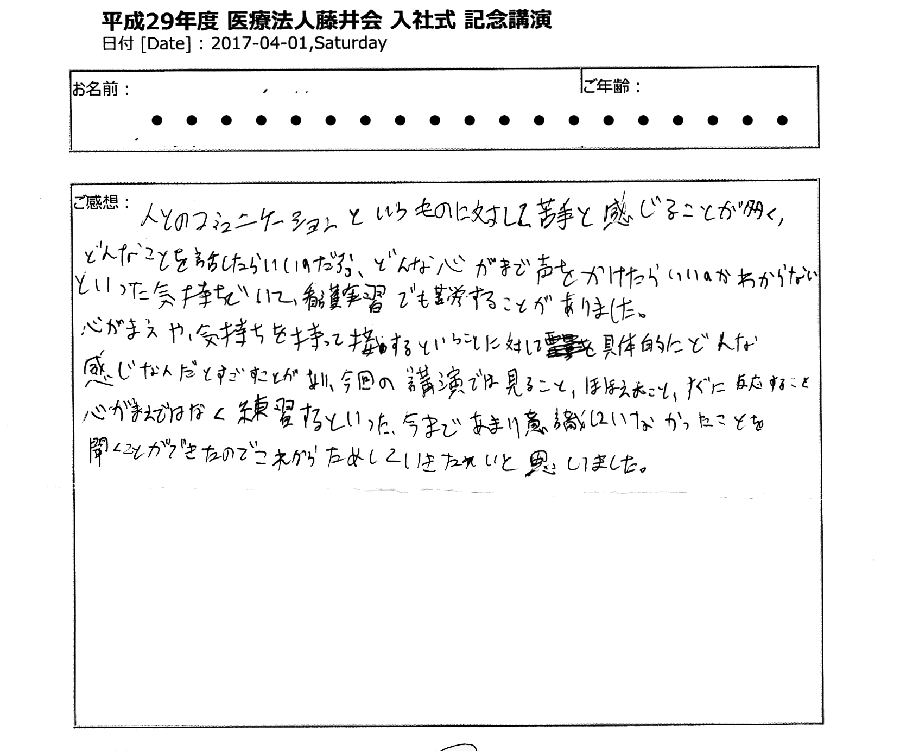 平成29年度 医療法人藤井会 入社式 記念講演
日付 [Date] : 2017-04-01,Saturday
お名前：
ご年齢：
ご感想：
人とのコミュニケーションというものに対して苦手と感じることが多く，
どんなことを話したらいいのだろう、どんな心がまえで声をかけたらいいのかわからない
といった気持ちでいて、看護実習でも苦労することがありました。
心がまえや、気持ちを持って接するということに対して を具体的にどんな
感じなんだとすごすことがあり、今回の講演では見ること，ほほえむこと，すぐに反応すること
心がまえではなく練習するといった、今まであまり意識していなかったことを
聞くことができたのでこれからためしていきたいと思いました。